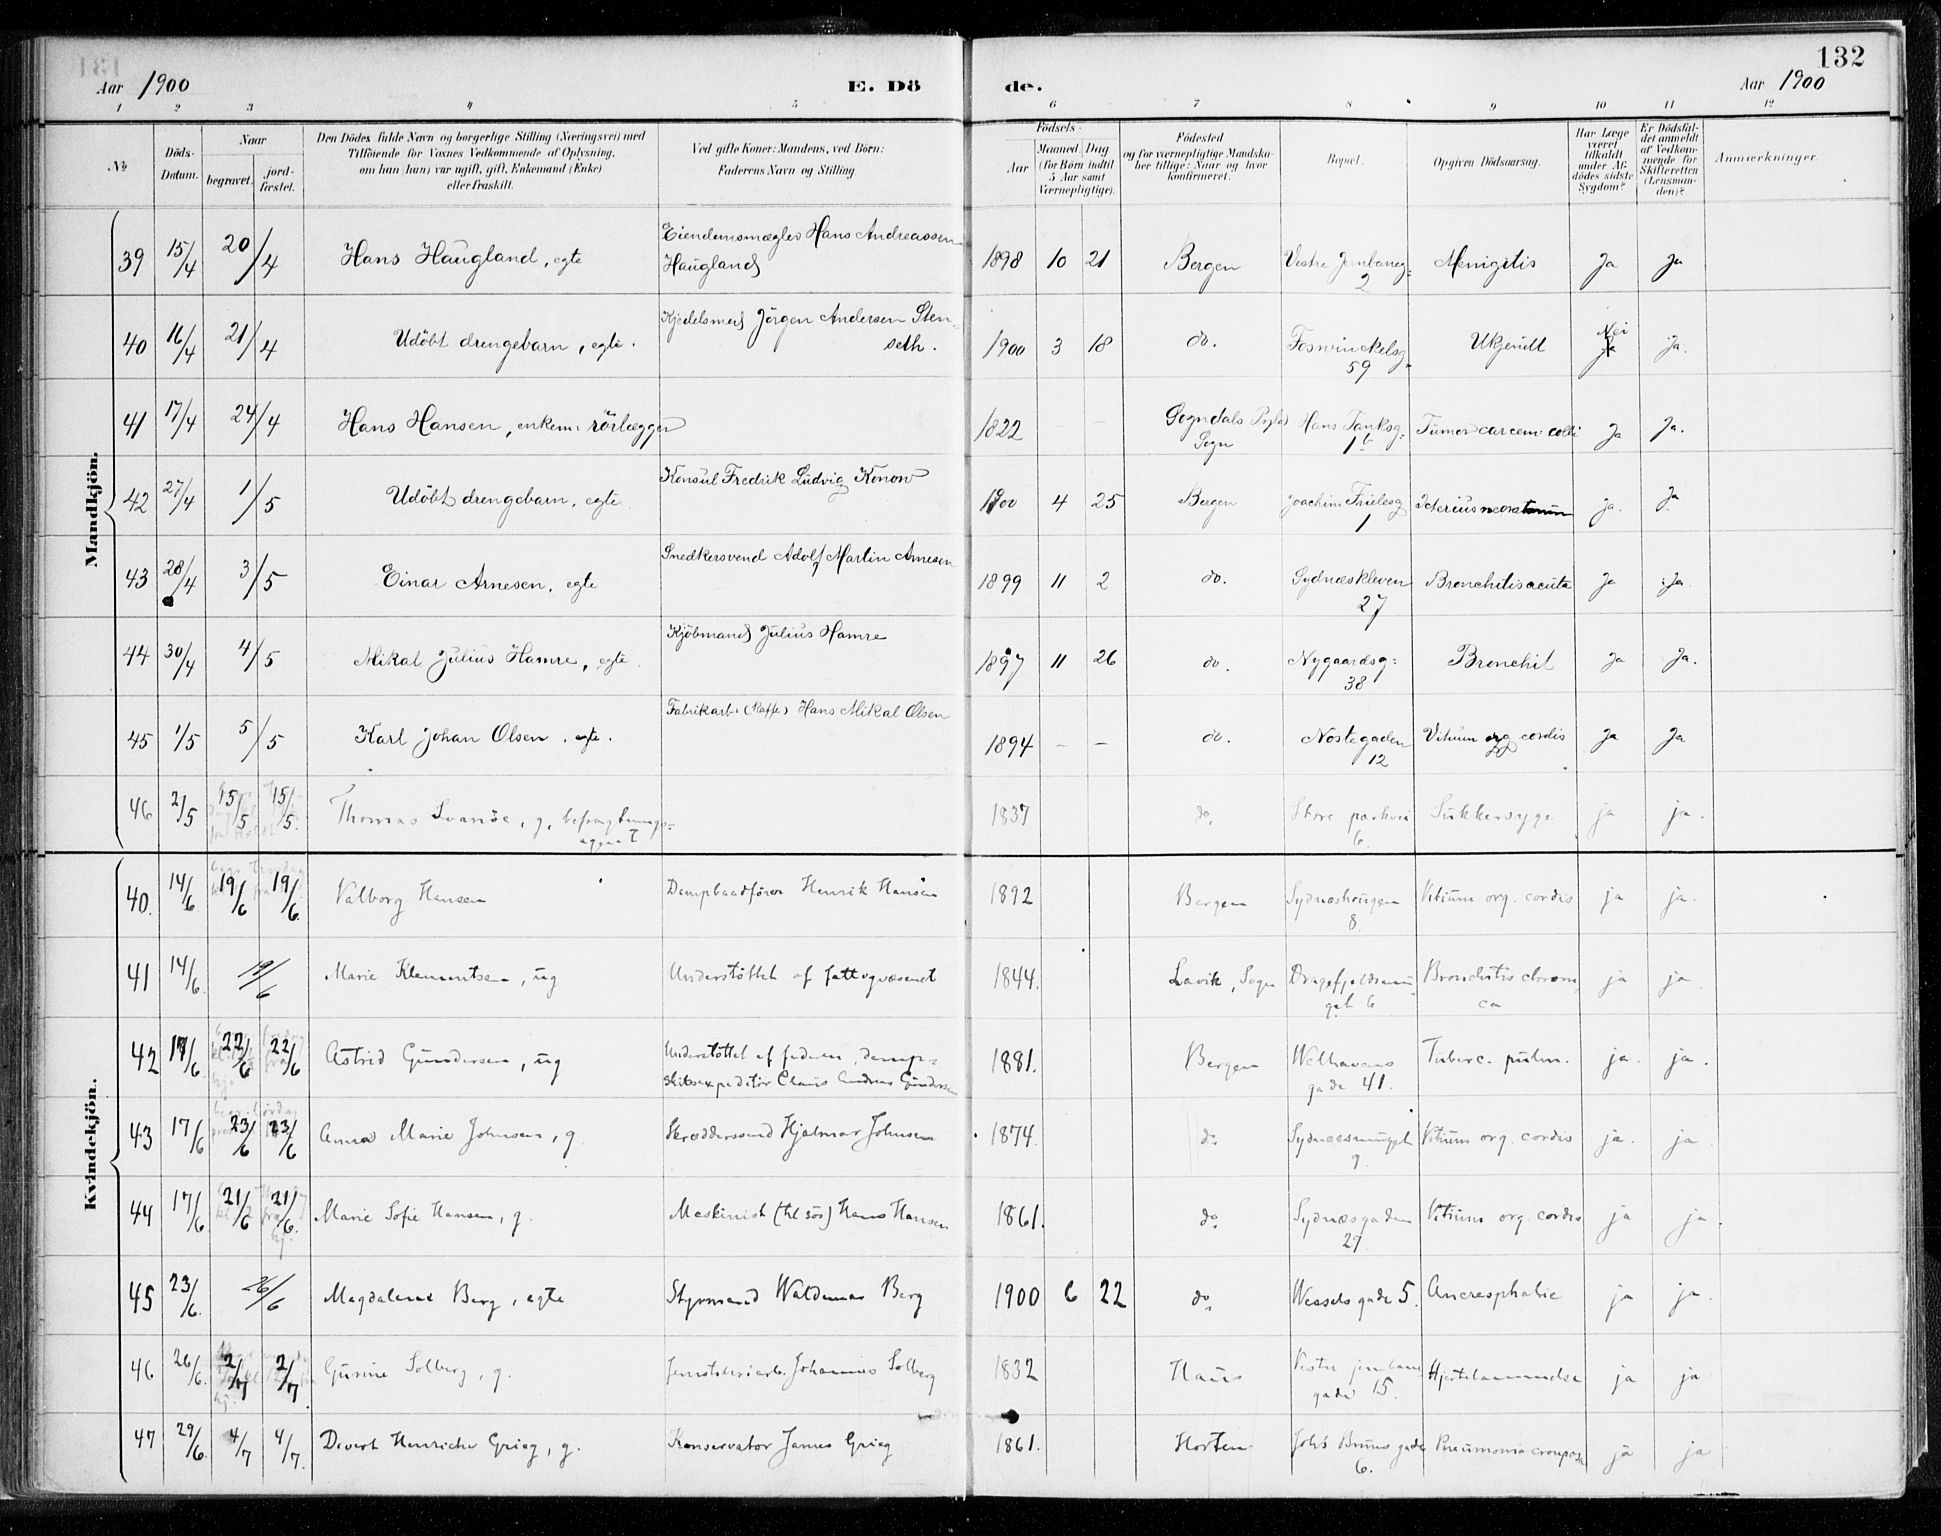 132
Aar 1900
E. Dö
de.
Aar 1900
1 2 3 4 5 6 7 8 9 10 11 12
No
Döds-
Datum.
Naar
begravet.
jord-
fæstet.
Den Dödes fulde Navn og borgerlige Stilling (Næringsvei) med
Tilföiende for Voxnes Vedkommende af Oplysning,
om han (hun) var ugift, gift, Enkemand (Enke)
eller fraskilt.
Ved gifte Koner: Mandens, ved Börn:
Faderens Navn og Stilling
Födsels-
Aar
Maaned Dag
(for Börn indtil
5 Aar samt
Værnepligtige).
Födested
og for værnepligtige Mandska-
ber tillige: Naar og hvor
konfirmeret.
Bopæl.
Opgiven Dödsaarsag.
Har Læge
været
tilkaldt
under Af-
dödes sidste
Sygdom?
Er Dödsfal-
det anmeldt
af Vedkom-
mende for
Skifteretten
(Lensman-
den)?
Anmærkninger.
Mandkjön.
39 15/4 20/4 Hans Haugland, egte Eiendomsmægler Hans Andreassen
Haugland 1898 10 21 Bergen Vestre Jernbaneg:
2 Menigitis Ja Ja
40 16/4 21/4 Udöbt drengebarn, egte. Kjedelsmed Jörgen Andersen Sten-
seth. 1900 3 18 do. Fosswinckelsg.
59 Ukjendt Nei Ja.
41 17/4 24/4 Hans Hansen, enkem: rörlægger 1822 — — Sogndals
Sogn Hans Tanksg:
1b Tumor carcem: colli Ja Ja.
42 27/4 1/5 Udöbt drengebarn, egte Konsul Fredrik Ludvig Konow 1900 4 25 Bergen Joachim Frielesg
1 Icterius neonatorum Ja. Ja
43 28/4 3/5 Einar Arnesen, egte Snedkersvend Adolf Martin Arnesen 1899 11 2 do. Sydnæskleven
27 Bronchitis acuta Ja Ja.
44 30/4 4/5 Mikal Julius Hamre, egte. Kjöbmand Julius Hamre 1897 11 26 do. Nygaardsg:
38 Bronchit Ja Ja.
45 1/5 5/5 Karl Johan Olsen, egte. Fabrikarb. (Kaffe) Hans Mikal Olsen 1894 — — do. Nöstegaden
12 Vitium org cordis Ja Ja
46 2/5 15/5 15/5. Thomas Svanöe, g, befragtnings-
agent 1837 do. Store parkvei
6. Sukkersyge ja ja.
Kvindekjön.
40. 14/6 19/6 19/6. Valborg Hansen Dampbaadförer Henrik Hansen 1892 Bergen Sydneshougen
8. Vitium org. cordis ja ja.
41 14/6. 19/6 Marie Klementsen, ug Understöttet af fattigvæsenet 1844. Lavik, Sogn Dragefjeldsmu-
get 6 Bronchitis chroni-
ca ja ja
42 18/6. 22/6 22/6 Astrid Gundersen, ug Understöttet af faderen, damp-
skibsexpeditör Claus Andreas Gundersen 1881. Bergen Welhavens
gade 41. Tuberc. pulm. ja. ja.
43 17/6 23/6 23/6 Anna Marie Johnsen, g. Skræddersvend Hjalmar Johnsen 1874. do. Sydnæssmuget
9 Vitium org. cordis ja. ja.
44 17/6 21/6 21/6. Marie Sofie Hansen, g. Maskinist (til sös) Hans Hansen 1861. do. Sydnæsgaden
29 Vitium org. cordis ja ja.
45 23/6. 26/6 Magdalena Berg, egte Styrmand Waldemar Berg 1900 6 22 do. Wessels gade 5. ja ja.
46 26/6. 2/7 2/7 Gurine Solberg, g. Jernstöberiarb. Johannes Solberg 1832 Haus Vestre jernbane
gade 15. Hjertelammelse ja ja
47 29/6. 4/7 4/7. Henriche Grieg, g. Konservator James Grieg 1861. Horten Johs Bruns gade
6. Pneumonia crouposa ja ja